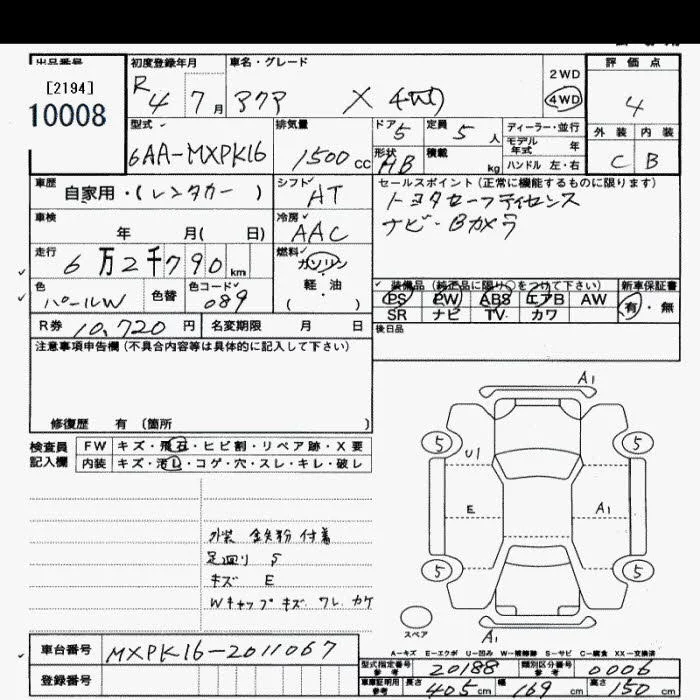 出品番号 初度登録年月 車名・グレード 2WD 評価点
[2194]
10008
R4 7月 アクア X 4WD 4WD 4
型式 排気量 ドア 5 定員 5人 ディーラー・並行 外装 内装
モデル年式 年
6AA-MXPK16 1500cc 形状 HB 積載 kg ハンドル 左・右 C B
車歴 シフト セールスポイント(正常に機能するものに限ります)
自家用・(レンタカー) AT トヨタセーフティセンス
車検 冷房 ナビ・Bカメラ
年 月(日) AAC
走行 燃料
6万2千790km ガソリン
軽・油
( )
色 色替 色コード 装備品(純正品に限り○をつけて下さい) 新車保証書
パールW 089 PS PW ABS エアB AW 有・無
SR ナビ TV カワ
R券 10,720円 名変期限 月 日 後日品
注意事項申告欄(不具合内容等は具体的に記入して下さい)
修復歴 有 〔箇所 〕
検査員 FW キズ・飛石・ヒビ割・リペア跡・X要
記入欄 内装 キズ・汚レ・コゲ・穴・スレ・キレ・破レ
外装 鉄粉付着
足廻り S
キズ E
Wキャップキズ. ワレ. カケ
A1
5 5
U1
E A1
5 5
スペア
A1
A-キズ E-エクボ U-凹み S-サビ C-腐食 XX-交換済
車台番号 MXPK16-2011067
登録番号
型式指定番号 参考 20188 類別区分番号 参考 0006
車庫証明用 参考 長さ 405cm 幅 169cm 高さ 150cm